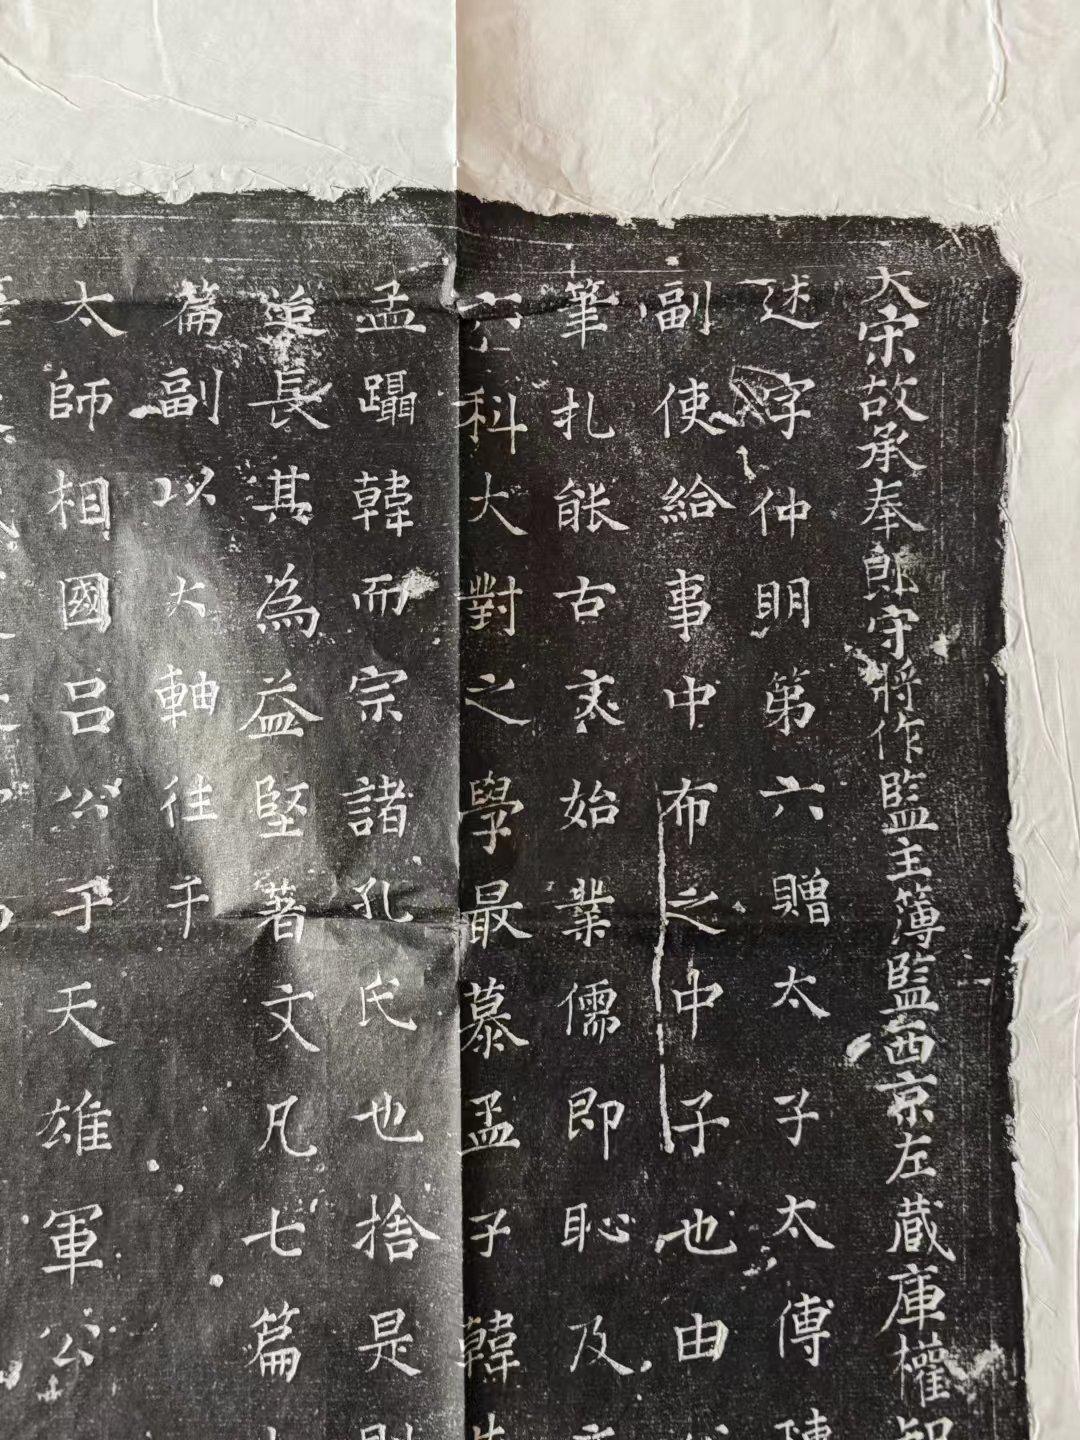 大宋故承奉郎守將作監主簿監西京左蔵庫權知
述字仲明第六贈太子太傅陳
副使給事中布之中子也由
筆扎能古文始業儒即恥及
六科大對之學最慕孟子韓
孟躡韓而宗諸孔氏也捨是則
追長其為益堅著文凡七篇
篇副以大軸徃干
太師相國呂公于天雄軍公